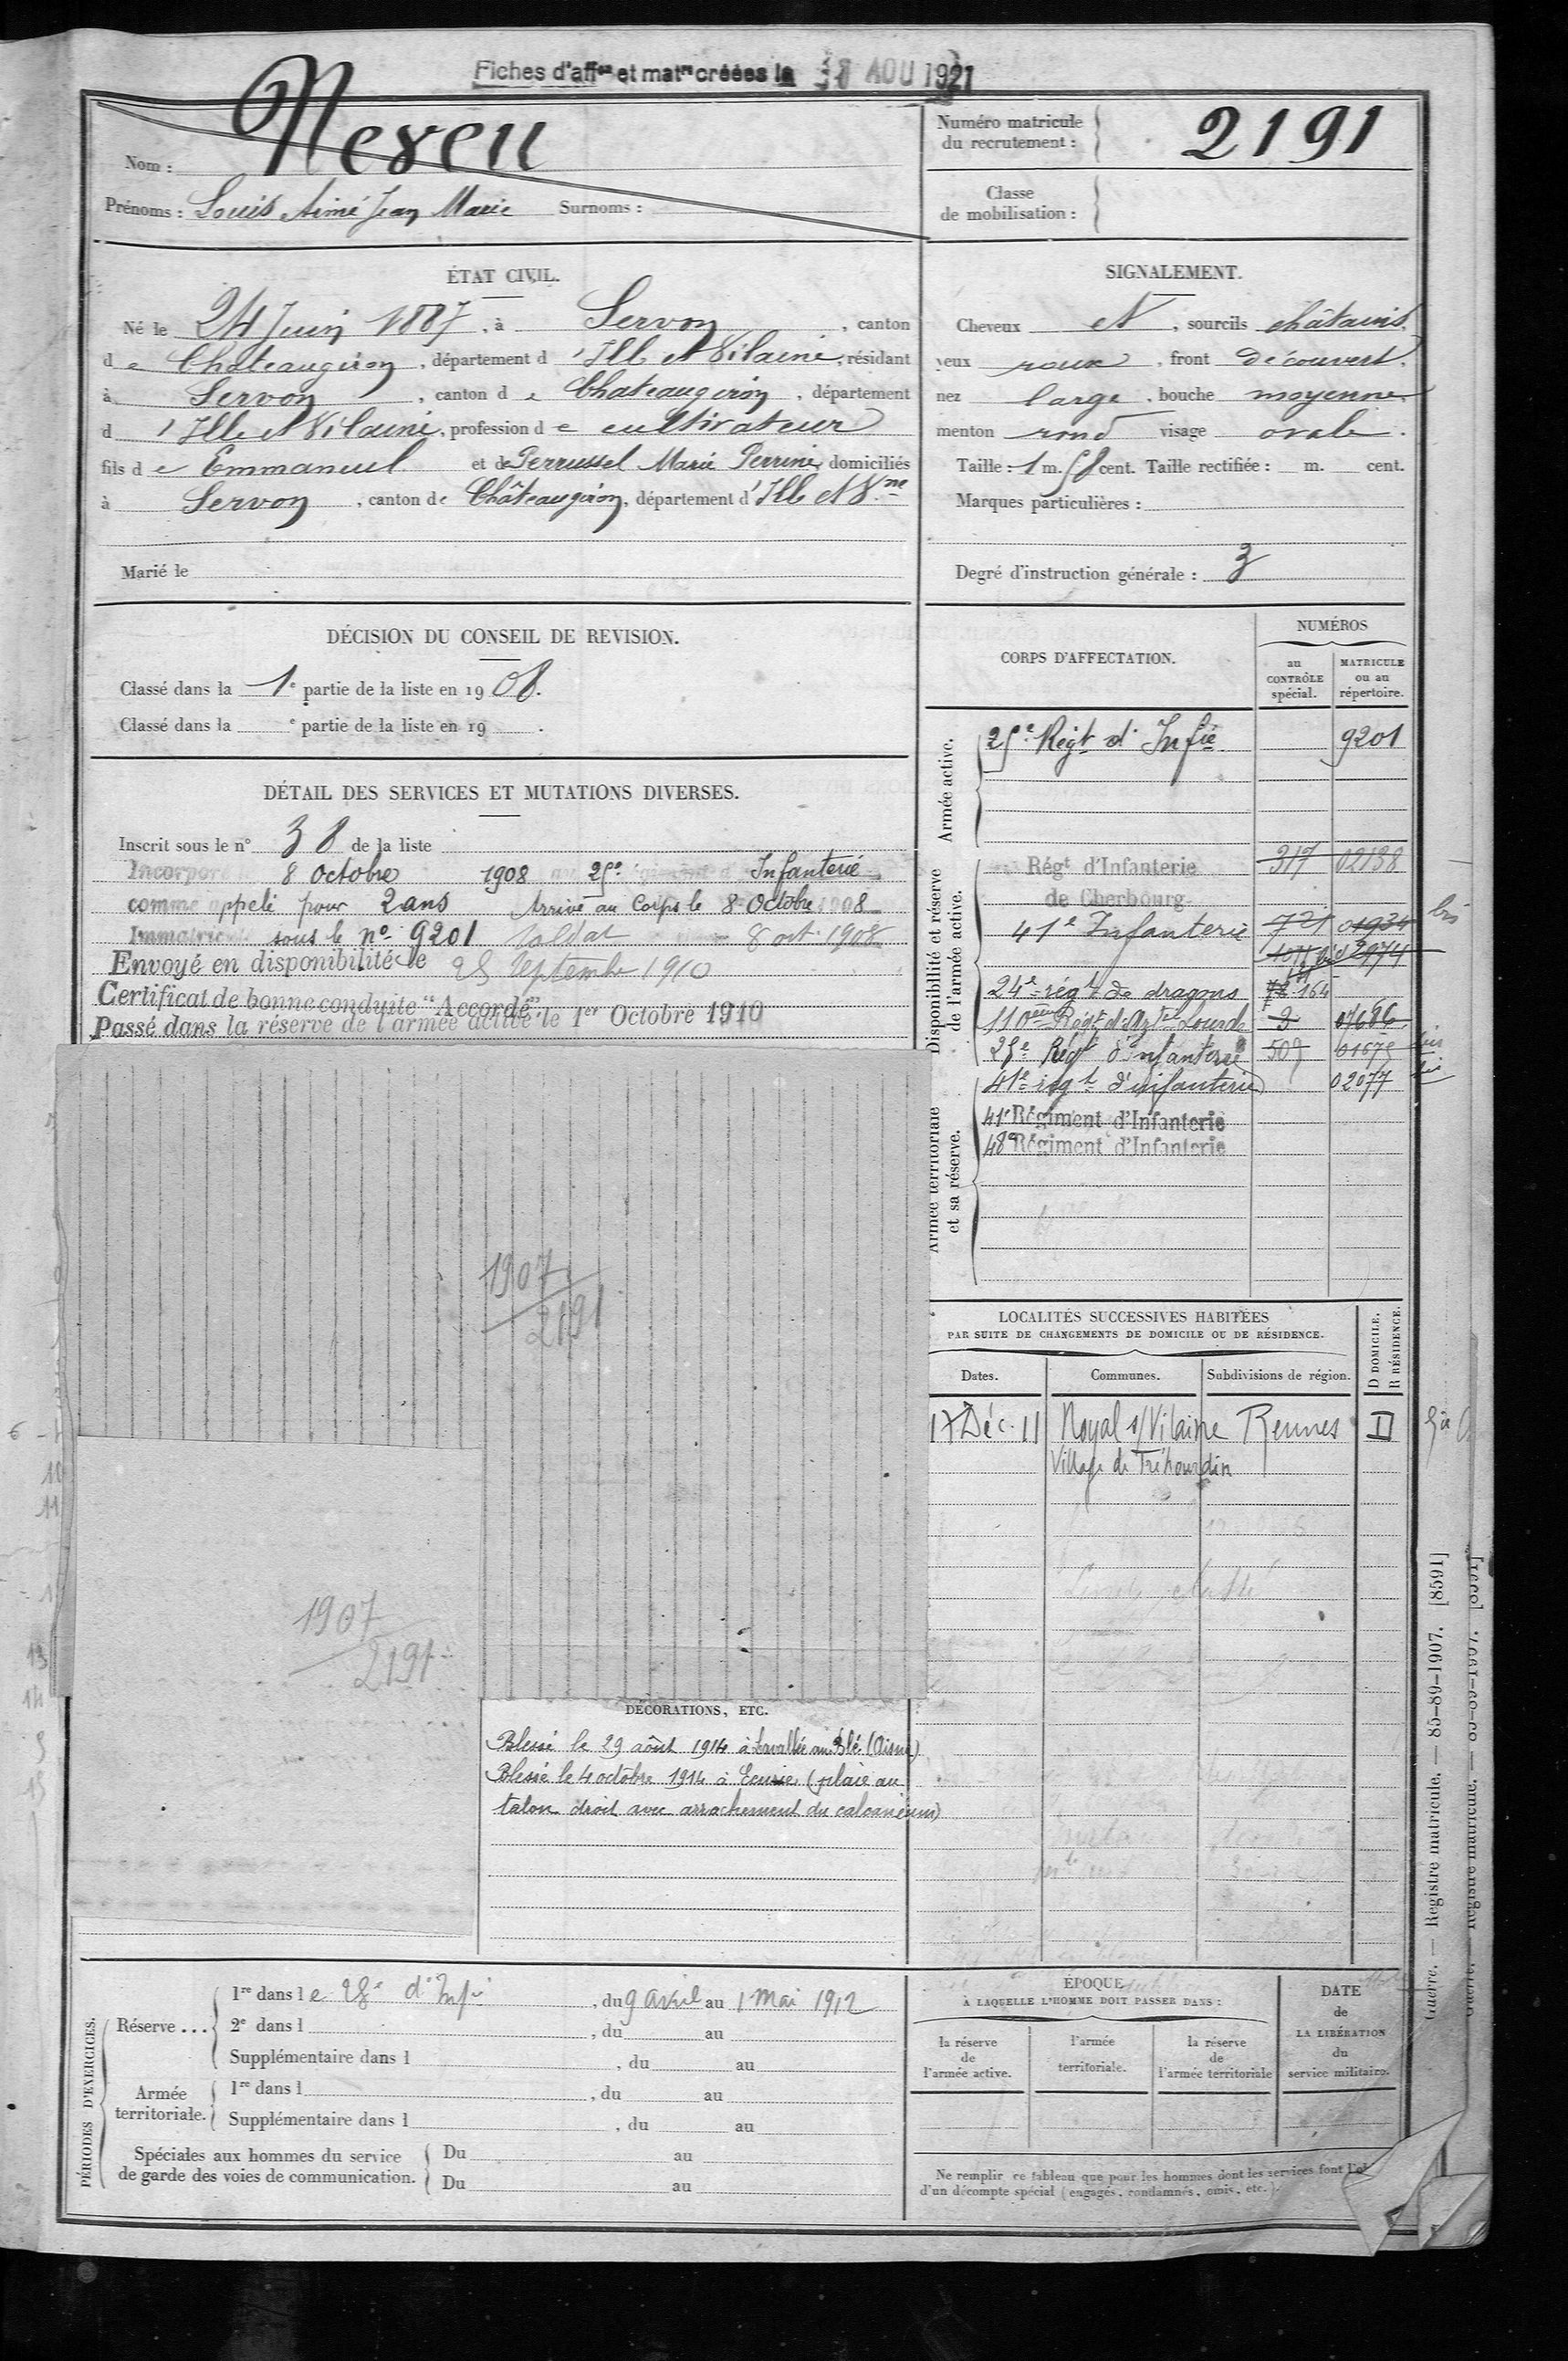 Fiches d'aff^on et mat^re créées le 18 AOU 1921
Nom : Neveu
Prénoms : Louis Aimé Jean Marie Surnoms :
Numéro matricule
du recrutement : 2191
Classe
de mobilisation :
ÉTAT CIVIL.
Né le 24 Juin 1887, à Servon, canton
de Chateaugiron, département d'Ille et Vilaine, résidant
à Servon, canton de Chateaugiron, département
d'Ille et Vilaine, profession de cultivateur
fils de Emmanuel et de Perrussel Marie Perrine domiciliés
à Servon, canton de Châteaugiron, département d'Ille et V.ne
Marié le
SIGNALEMENT.
Cheveux et, sourcils châtains,
yeux roux, front découvert,
nez large, bouche moyenne,
menton rond visage ovale.
Taille : 1 m. 58 cent. Taille rectifiée : m. cent.
Marques particulières :
Degré d'instruction générale : 3
DÉCISION DU CONSEIL DE REVISION.
Classé dans la 1e partie de la liste en 1908.
Classé dans la e partie de la liste en 19 .
DÉTAIL DES SERVICES ET MUTATIONS DIVERSES.
Inscrit sous le n° 38 de la liste
Incorporé le 8 Octobre 1908 au 25e régiment d Infanterie
comme appelé pour 2 ans Arrivé au Corps le 8 Octobre 1908
Immatriculé sous le n° 9201 Soldat 8 oct. 1908
Envoyé en disponibilité le 25 Septembre 1910
Certificat de bonne conduite "Accordé"
Passé dans la réserve de l'armée active le 1er Octobre 1910
1907
2191
1907
2191
CORPS D'AFFECTATION.
NUMÉROS
au
CONTRÔLE
spécial.
MATRICULE
ou au
répertoire.
Armée active.
25e Régt d'Infie 9201
Disponibilité et réserve
de l'armée active.
Régt d'Infanterie 317 02138
de Cherbourg
41e Infanterie 721 01934 bis
2074
24e régt de dragons 164
110ème Régt d'Arte Lourde 3 07686
25e Régt d'infanterie 509 01675
Armée territoriale
et sa réserve.
41e régt d'infanterie 02077
41e Régiment d'Infanterie
48e Régiment d'Infanterie
LOCALITÉS SUCCESSIVES HABITÉES
PAR SUITE DE CHANGEMENTS DE DOMICILE OU DE RÉSIDENCE.
Dates. Communes. Subdivisions de région.
D DOMICILE.
R RÉSIDENCE.
17 Déc. 11 Noyal s/Vilaine Rennes D
Village de Tréhourdin
DÉCORATIONS, ETC.
Blessé le 29 août 1914 à Lavallée au Blé (Aisne)
Blessé le 4 octobre 1914 à Ecurie (plaie au
talon droit avec arrachement du calcanéum)
PÉRIODES D'EXERCICES.
Réserve ...
1re dans le 25e d'Infie, du 9 avril au 1 Mai 1912
2e dans l , du au
Supplémentaire dans l , du au
Armée
territoriale.
1re dans l , du au
Supplémentaire dans l , du au
Spéciales aux hommes du service
de garde des voies de communication.
Du au
Du au
ÉPOQUE
À LAQUELLE L'HOMME DOIT PASSER DANS :
la réserve
de
l'armée active.
l'armée
territoriale.
la réserve
de
l'armée territoriale
DATE
de
LA LIBÉRATION
du
service militaire.
Ne remplir ce tableau que pour les hommes dont les services font l'ob
d'un décompte spécial (engagés, condamnés, omis, etc.).
Guerre. — Registre matricule. — 85-89-1907. [8591]